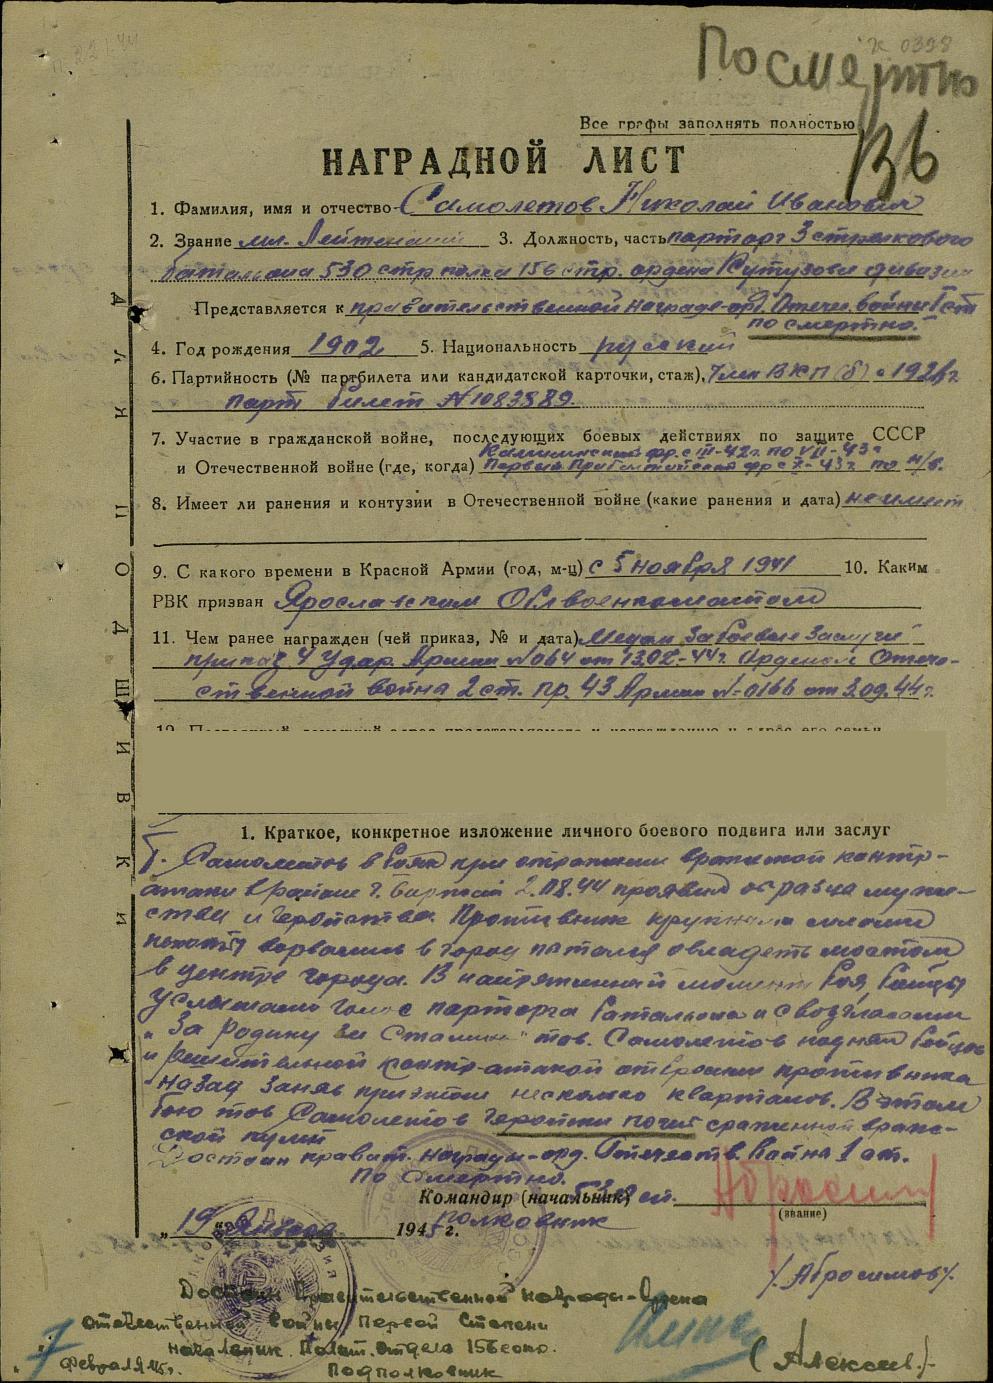 Посмертно
К 0398
136
Все графы заполнять полностью
НАГРАДНОЙ ЛИСТ
1. Фамилия, имя и отчество Самолетов Николай Иванович
2. Звание мл. Лейтенант 3. Должность, часть парторг 3 стрелкового
батальона 530 стр полка 156 стр. ордена Кутузова дивизии
Представляется к правительственной награде-орд. Отечес. войны I ст
посмертно.
4. Год рождения 1902 5. Национальность русский
6. Партийность (№ партбилета или кандидатской карточки, стаж), Член ВКП(б) с 1928г.
парт билет №1083889.
7. Участие в гражданской войне, последующих боевых действиях по защите СССР
Калининский фр. с III-42г. по VII-43г
и Отечественной войне (где, когда) Первый Прибалтийский фр с X-43г. по н/в.
8. Имеет ли ранения и контузии в Отечественной войне (какие ранения и дата) не имеет
9. С какого времени в Красной Армии (год, м-ц) с 5 ноября 1941 10. Каким
РВК призван Ярославским Облвоенкоматом
11. Чем ранее награжден (чей приказ, № и дата) Медаль За боевые заслуги
приказ 4 Удар. Армии №064 от 13.02-44г. Орденом Отече-
ственной война 2 ст. пр. 43 Армии №-0166 от 3.09.44г.
1. Краткое, конкретное изложение личного боевого подвига или заслуг
Т. Самолетов в боях при отражении вражеской контр-
атаки в районе г. 2.08.44 проявил образцы муже-
ства и геройства. Противник крупными силами
пехоты ворвались в город пытался овладеть мостом
в центре города. В напряженный момент боя, бойцы
услышали голос парторга батальона и с возгласом
"За Родину за Сталина" тов. Самолетов поднял бойцов
и решительной контр-атакой отбросили противника
назад заняв при этом несколько кварталов. В этом
бою тов Самолетов геройски погиб сраженной враже-
ской пулей
Достоин правит. награды-орд. Отечеств. Война 1 ст.
По смертно.
Командир (начальник) 530 сп.
(звание)
полковник
„19" Января 1945 г.
/Абросимов/.
Достоин Правительственной награды-Ордена
отечественной войны Первой Степени
начальник Полит. отдела 156 сокд.
Подполковник
(Алексеев)
7 Февраля 45г.
ДЛЯ ПОДШИВКИ